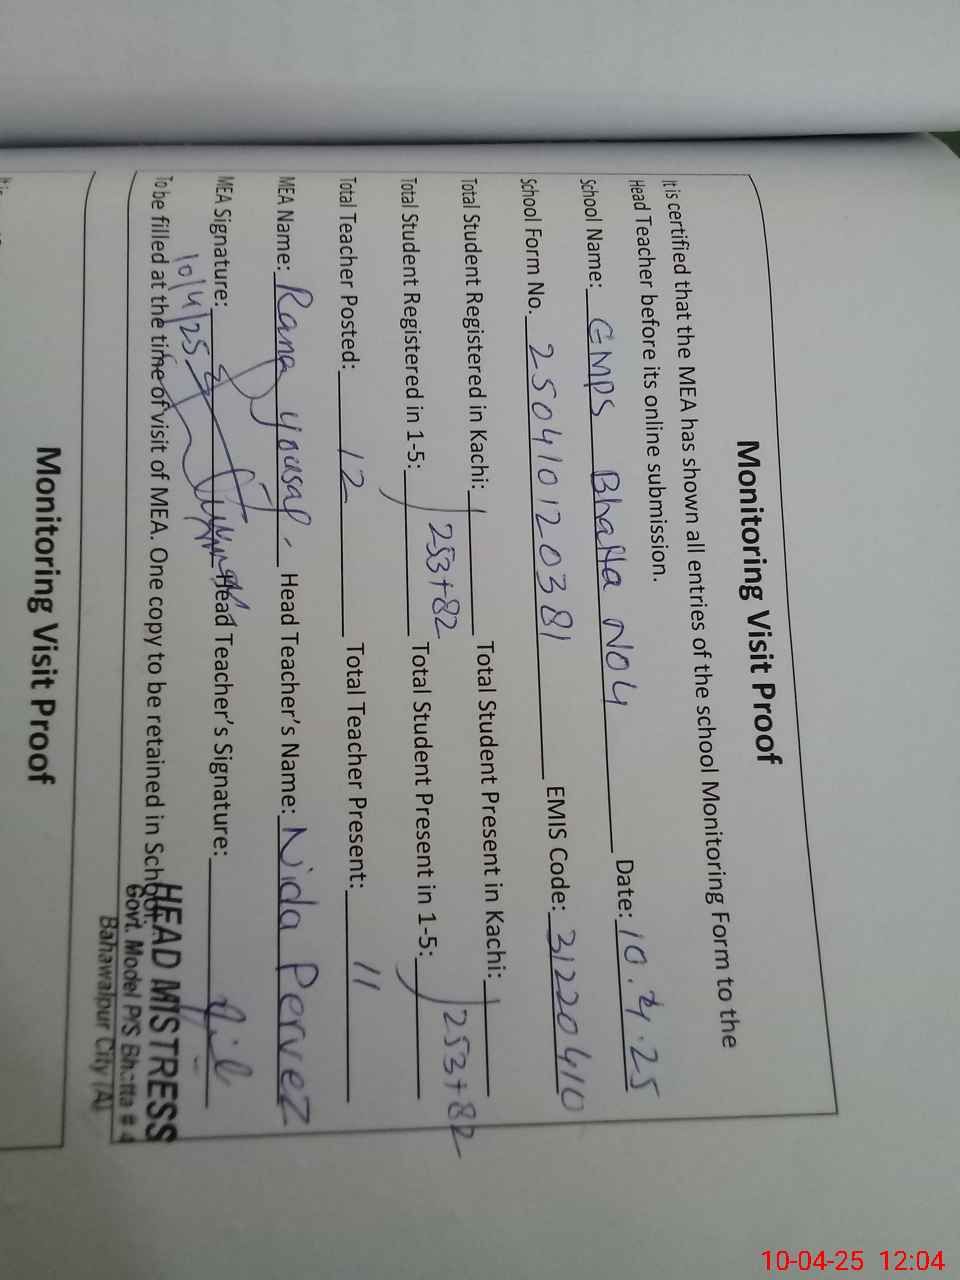 Monitoring Visit Proof
It is certified that the MEA has shown all entries of the school Monitoring Form to the
Head Teacher before its online submission.
School Name: GMPS Bhatta NO4 Date: 10.4.25
School Form No. 250410120381 EMIS Code: 31220410
Total Student Registered in Kachi: Total Student Present in Kachi:
253+82 253+82
Total Student Registered in 1-5: Total Student Present in 1-5:
Total Teacher Posted: 12 Total Teacher Present: 11
MEA Name: Rana yousaf Head Teacher's Name: Nida Pervez
MEA Signature: Head Teacher's Signature:
10/4/25
To be filled at the time of visit of MEA. One copy to be retained in School.
HEAD MISTRESS
Govt. Model P/S Bhatta # 4
Bahawalpur City (A)
Monitoring Visit Proof
It is
10-04-25 12:04